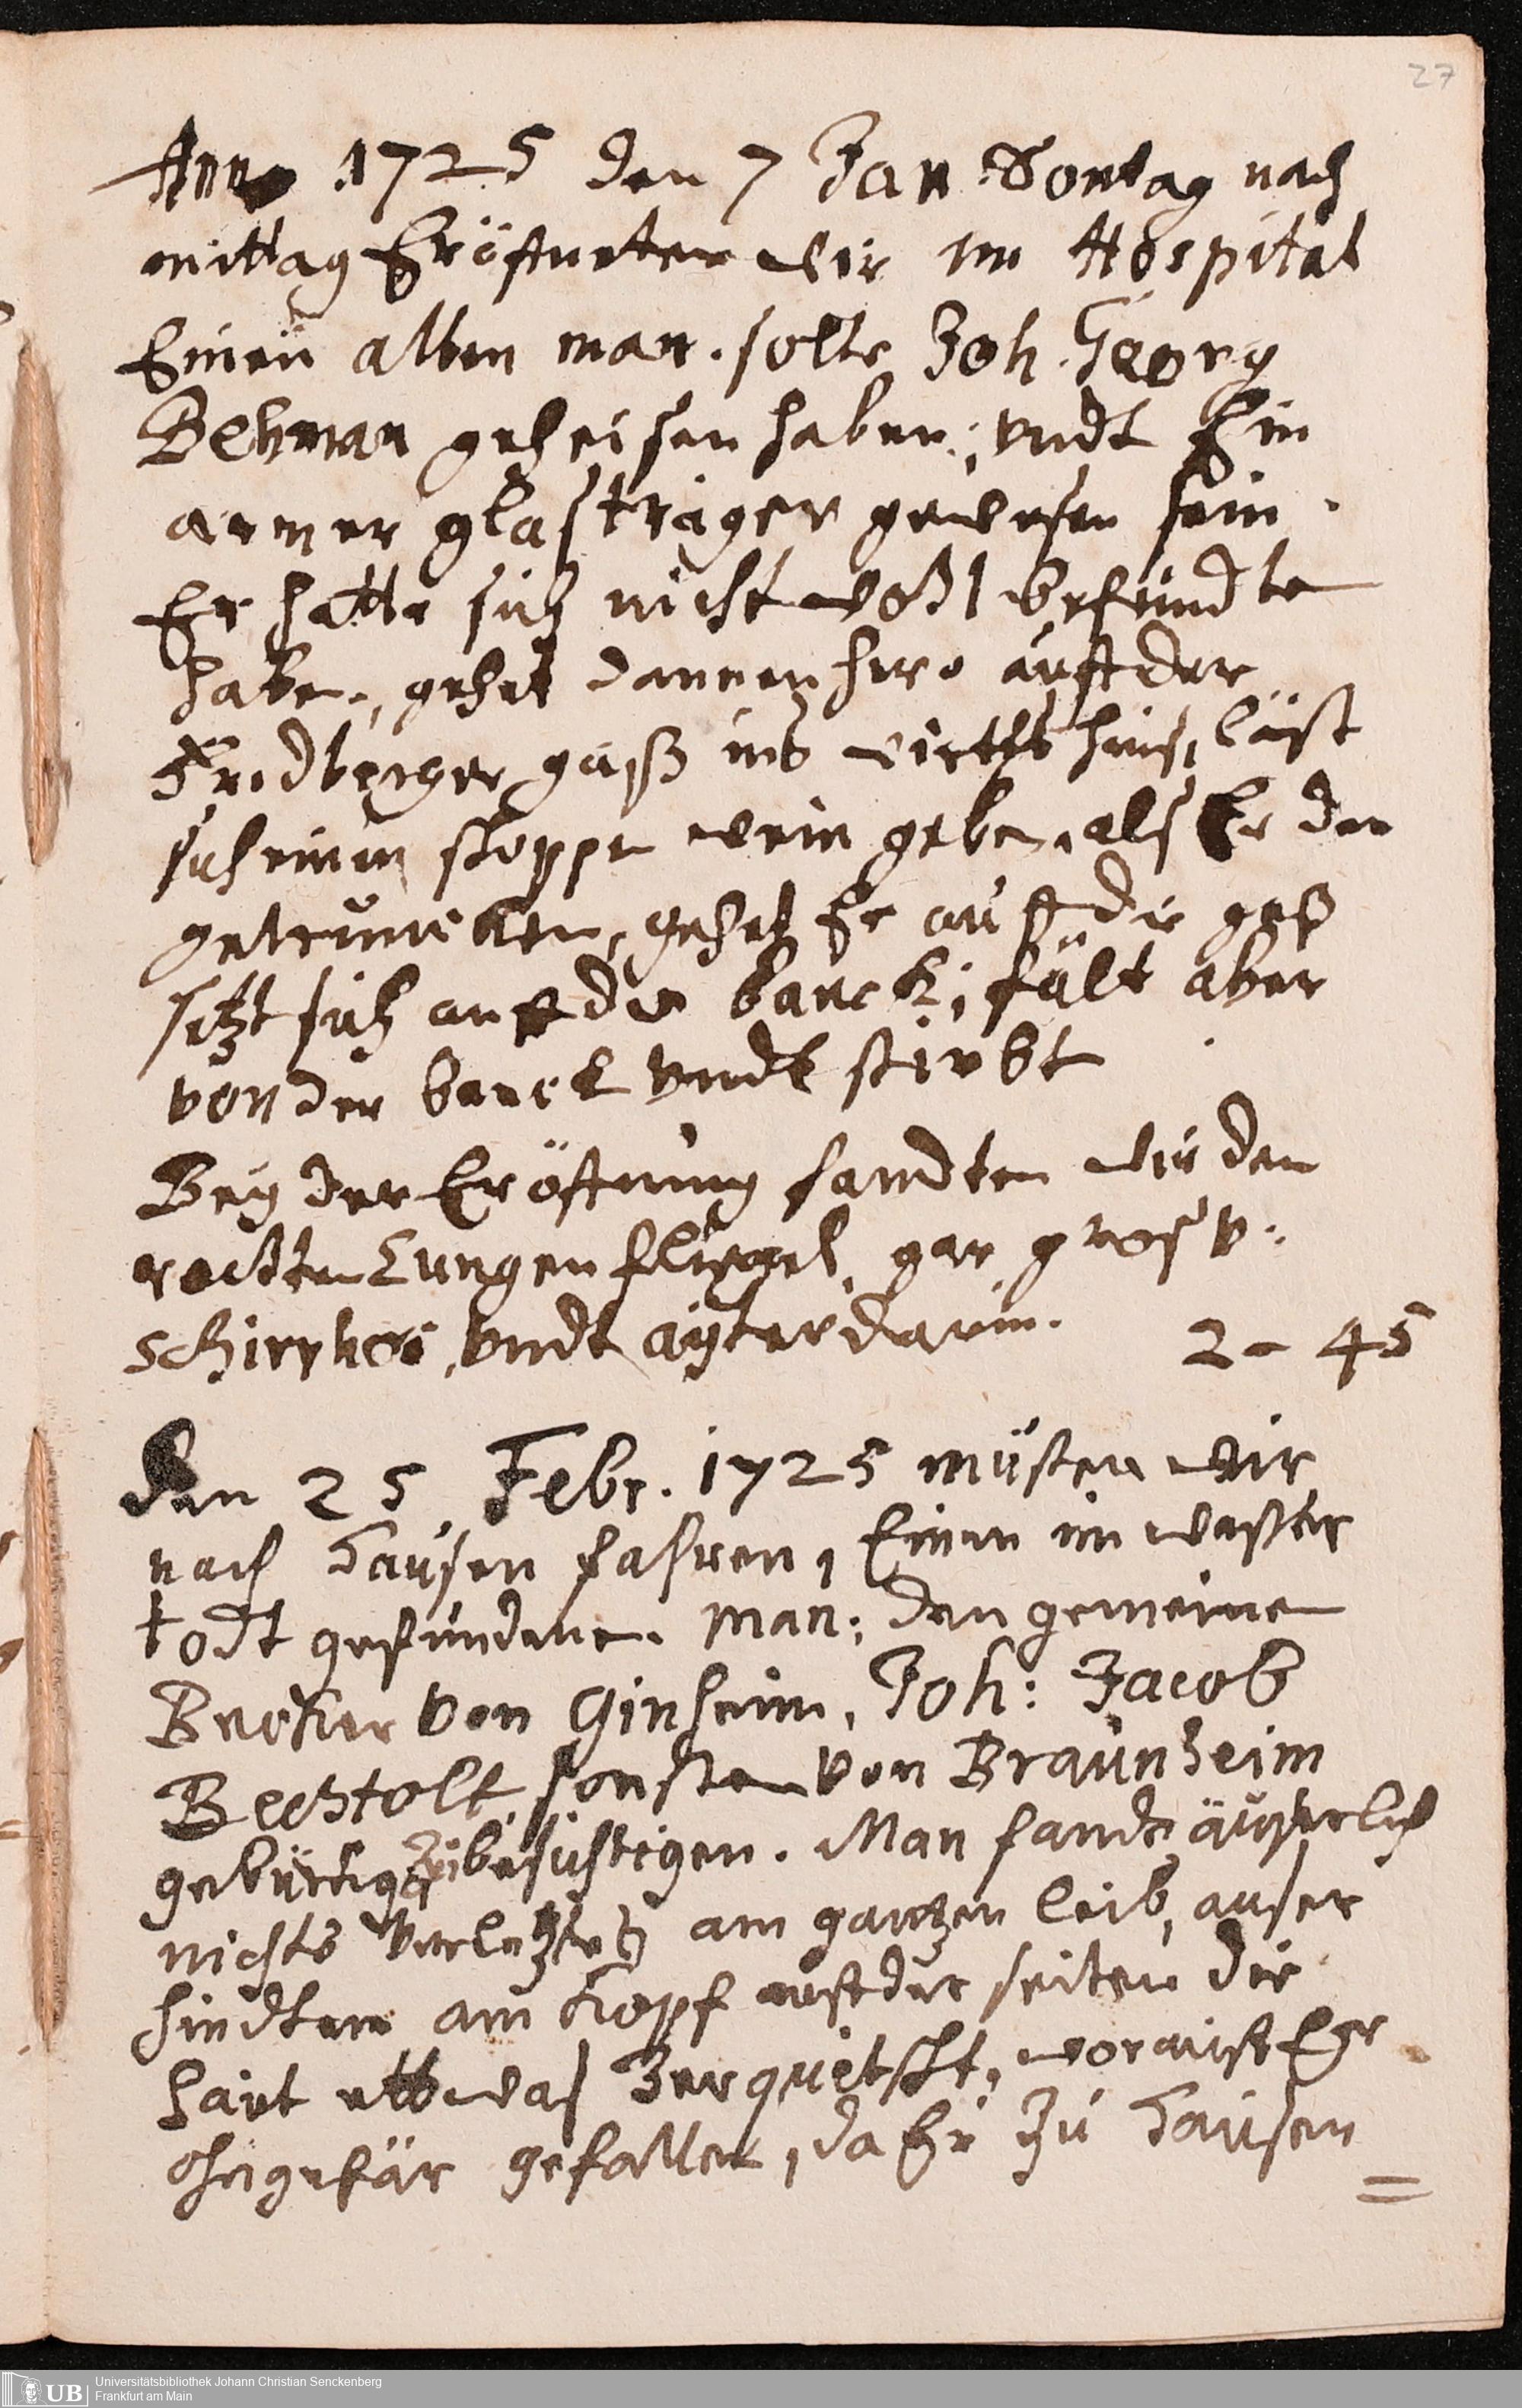 27
Anno 1725 den 7 Jan Sontag nach
mittag Eröftneten wir im Hospital
Einen alten man. solte Joh. Georg
Behman geheisen haben; vndt Ein
armer glaßträger gewesen sein.
Er hatte sich nicht wohl befindte
haben, gehet dannenhero auff der
Fridberger gaß ins wirtths hauß, läst
sich einen schoppen wein geben, als Er den
getruncken, gehet Er auff die gaß
setzt sich auff die banck; fält aber
von der banck vndt stirbt
Bey der Eröftnung fandten wir den
rechten Lungen fliegel, gar groß v.
schirrhos, vndt äyter darin. 2 - 45
Den 25. Febr. 1725 musten wir
nach Hausen fahren, Einen im waßer
todt gefundene. Man; den gemeinen
Becker von Ginheim, Joh: Jacob
Bechtolt, sonsten von Braunheim
gebürtig, zu besichtigen. Man fandt äuserlich
nichts verletztes am gantzen leib, auser
hindten am Kopf auff der seiten die
haut ettwaß zerquetscht, worauff Er
ohngefär gefallen, da Er zu Hausen
=
UB Universitätsbibliothek Johann Christian Senckenberg
Frankfurt am Main